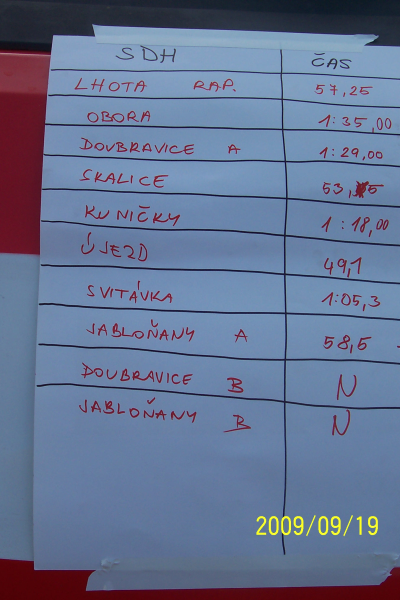 SDH ČAS
LHOTA RAP. 57,25
OBORA 1:35,00
DOUBRAVICE A 1:29,00
SKALICE 53,5
KUNIČKY 1:18,00
ÚJEZD 49,1
SVITÁVKA 1:05,3
JABLOŇANY A 58,5
DOUBRAVICE B N
JABLOŇANY B N
2009/09/19